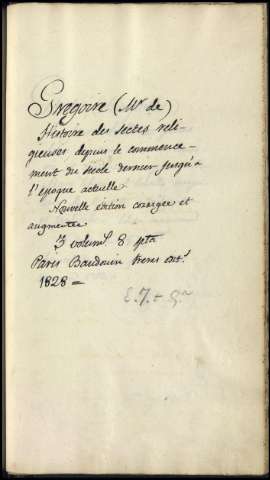 Grégoire (Mr de)
Histoire des sectes reli-
gieuses depuis le commence-
ment du siècle dernier jusqu'a
l'epoque actuelle
Nouvelle edition corrigée et
augmentée
3 volum. 8
Paris Baudouin frères
1828 =